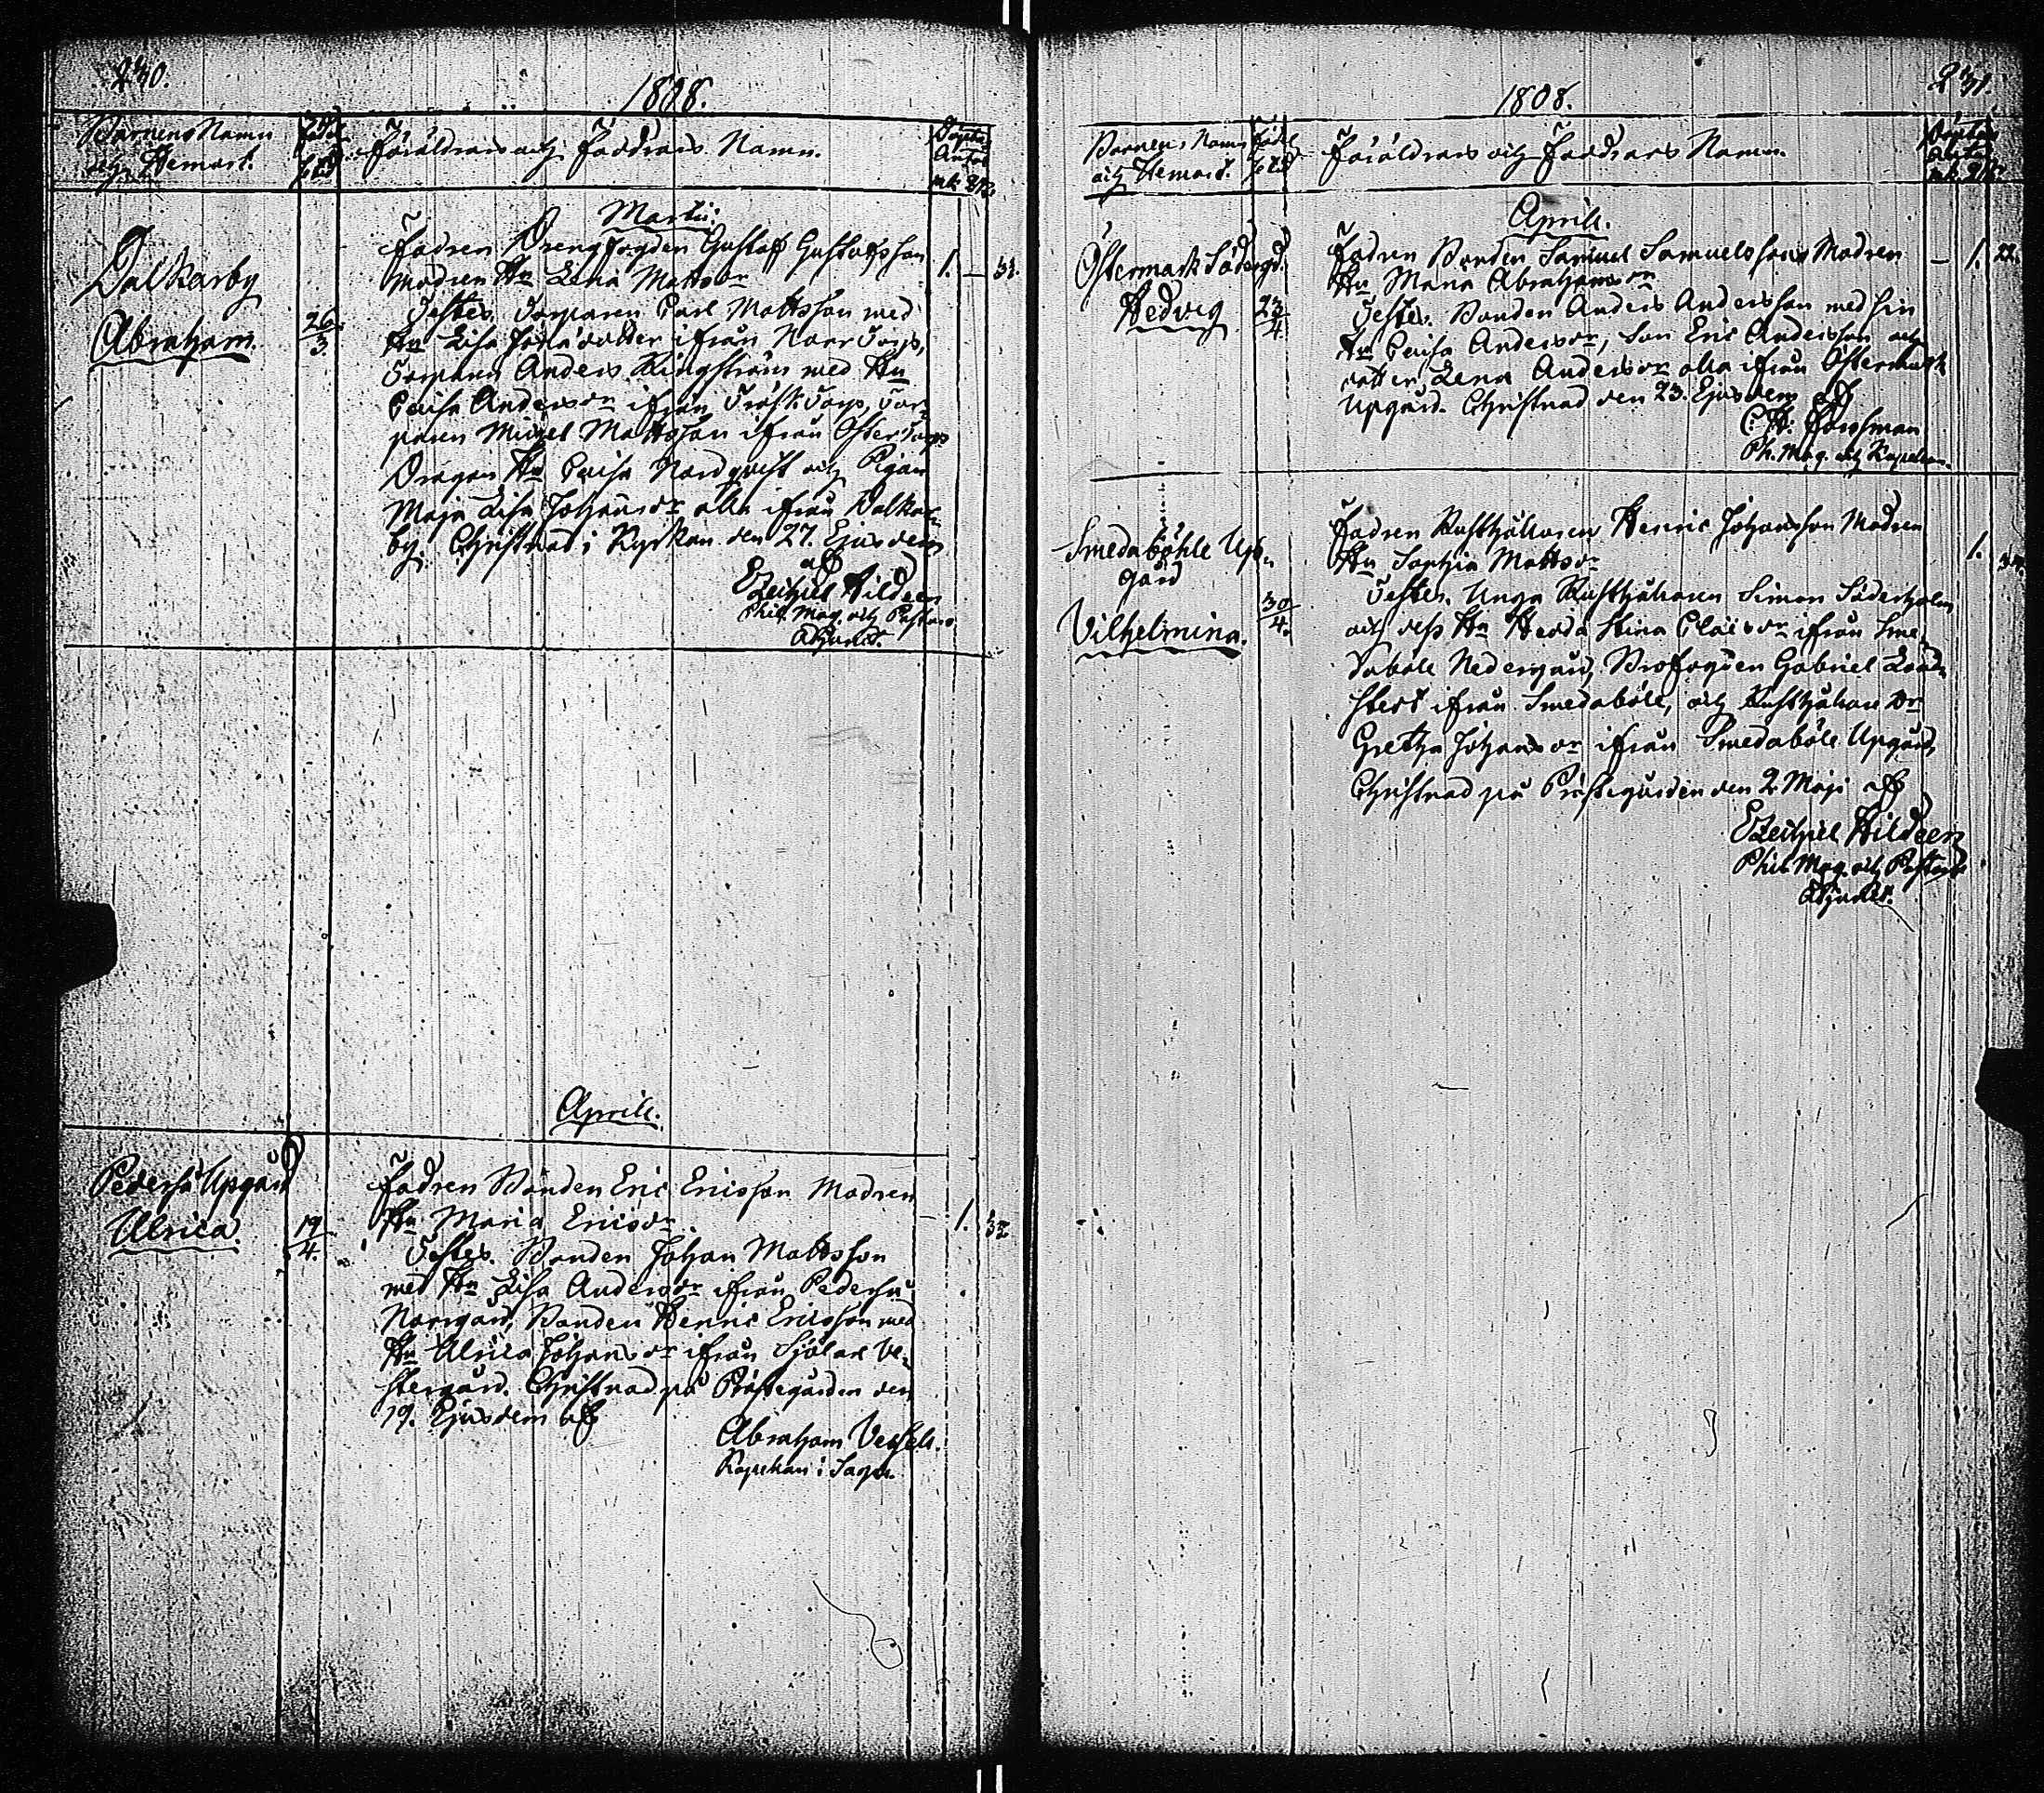 230.
1808.
Barnens Namn
och Hemort.
född
Föräldrars och Faddrars Namn.
Martii.
Dalkarby
Abraham.
26/3.
Fadren Drengfogden Gustaff Gustafsson
Modren Hu Lena Mattsdr
Testes. Torparen Carl Mattsson med
Hu Lisa ifrån Norr Torp,
Torparen Anders Ringström med Hu
Caisa Andersdr ifrån Träsk Torp, Tor-
paren Michel Mattsson ifrån Öster Torp
Dragon Hu Caisa Nordqvist och Pigan
Maja Lisa Johansdr alla ifrån Dalkar-
by. Christnad i Kyrkan den 27. Ejusdem
af
Ezechiel Hildeen
Phil. Mag. och Pastors
Adjunct.
1. — 32.
Aprill.
Pederså Upgård
Ulrica.
19/4.
Fadren Bonden Eric Ericsson Modren
Hu Maria Ericsdr
Testes. Bonden Johan Mattsson
med Hu Lisa Andersdr ifrån Pederså
Norrgård, Bonden Henric Ericsson med
Hu Ulrica Johansdr ifrån Sjölax Ve-
stergård. Christnad på Prästegården den
19. Ejusdem af
Abraham
Kapellan i Sagu.
1. 32
231.
1808.
Barnens Namn
och Hemort.
född
Föräldrars och Faddrars Namn.
Aprill.
Östermark Södergd.
Hedvig
23/4
Fadren Bonden Samuel Samuelsson Modren
Hu Maria Abrahamsdr
Testes. Bonden Anders Andersson med sin
Hu Caisa Andersdr, Son Eric Andersson och
dotter Lena Andersdr alla ifrån Östermark
Upgård. Christnad den 23. Ejusdem af
C. H. Forssman
Ph. Mag. och Kapellan.
— 1. 22.
Smedaböhle Up-
gård
Vilhelmina.
30/4.
Fadren Rusthållaren Henric Johansson Modren
Hu Sophia Mattsdr
Testes. Unga Rusthållaren Simon Söderholm
och dess Hu Hedda Stina Claisdr ifrån Sme-
daböle Nedergård, Brofogden Gabriel
ifrån Smedaböle, och Rusthållare Dr
Gretha Johansdr ifrån Smedaböle Upgård,
Christnad på Prästegården den 2 Maji af
Ezechiel Hildeen
Phil. Mag. och Pastors
Adjunct.
1.